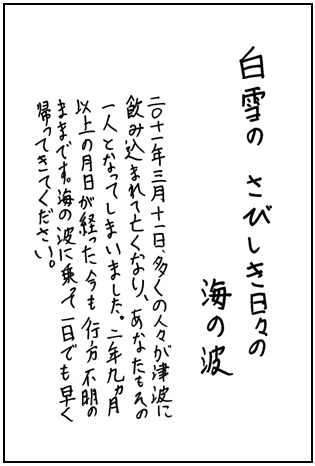 白雪の さびしき日々の
海の波
二〇十一年三月十一日、多くの人々が津波に
飲み込まれて亡くなり、あなたもその
一人となってしまいました。二年九ヵ月
以上の月日が経った今も行方不明の
ままです。海の波に乗って一日でも早く
帰ってきてください。